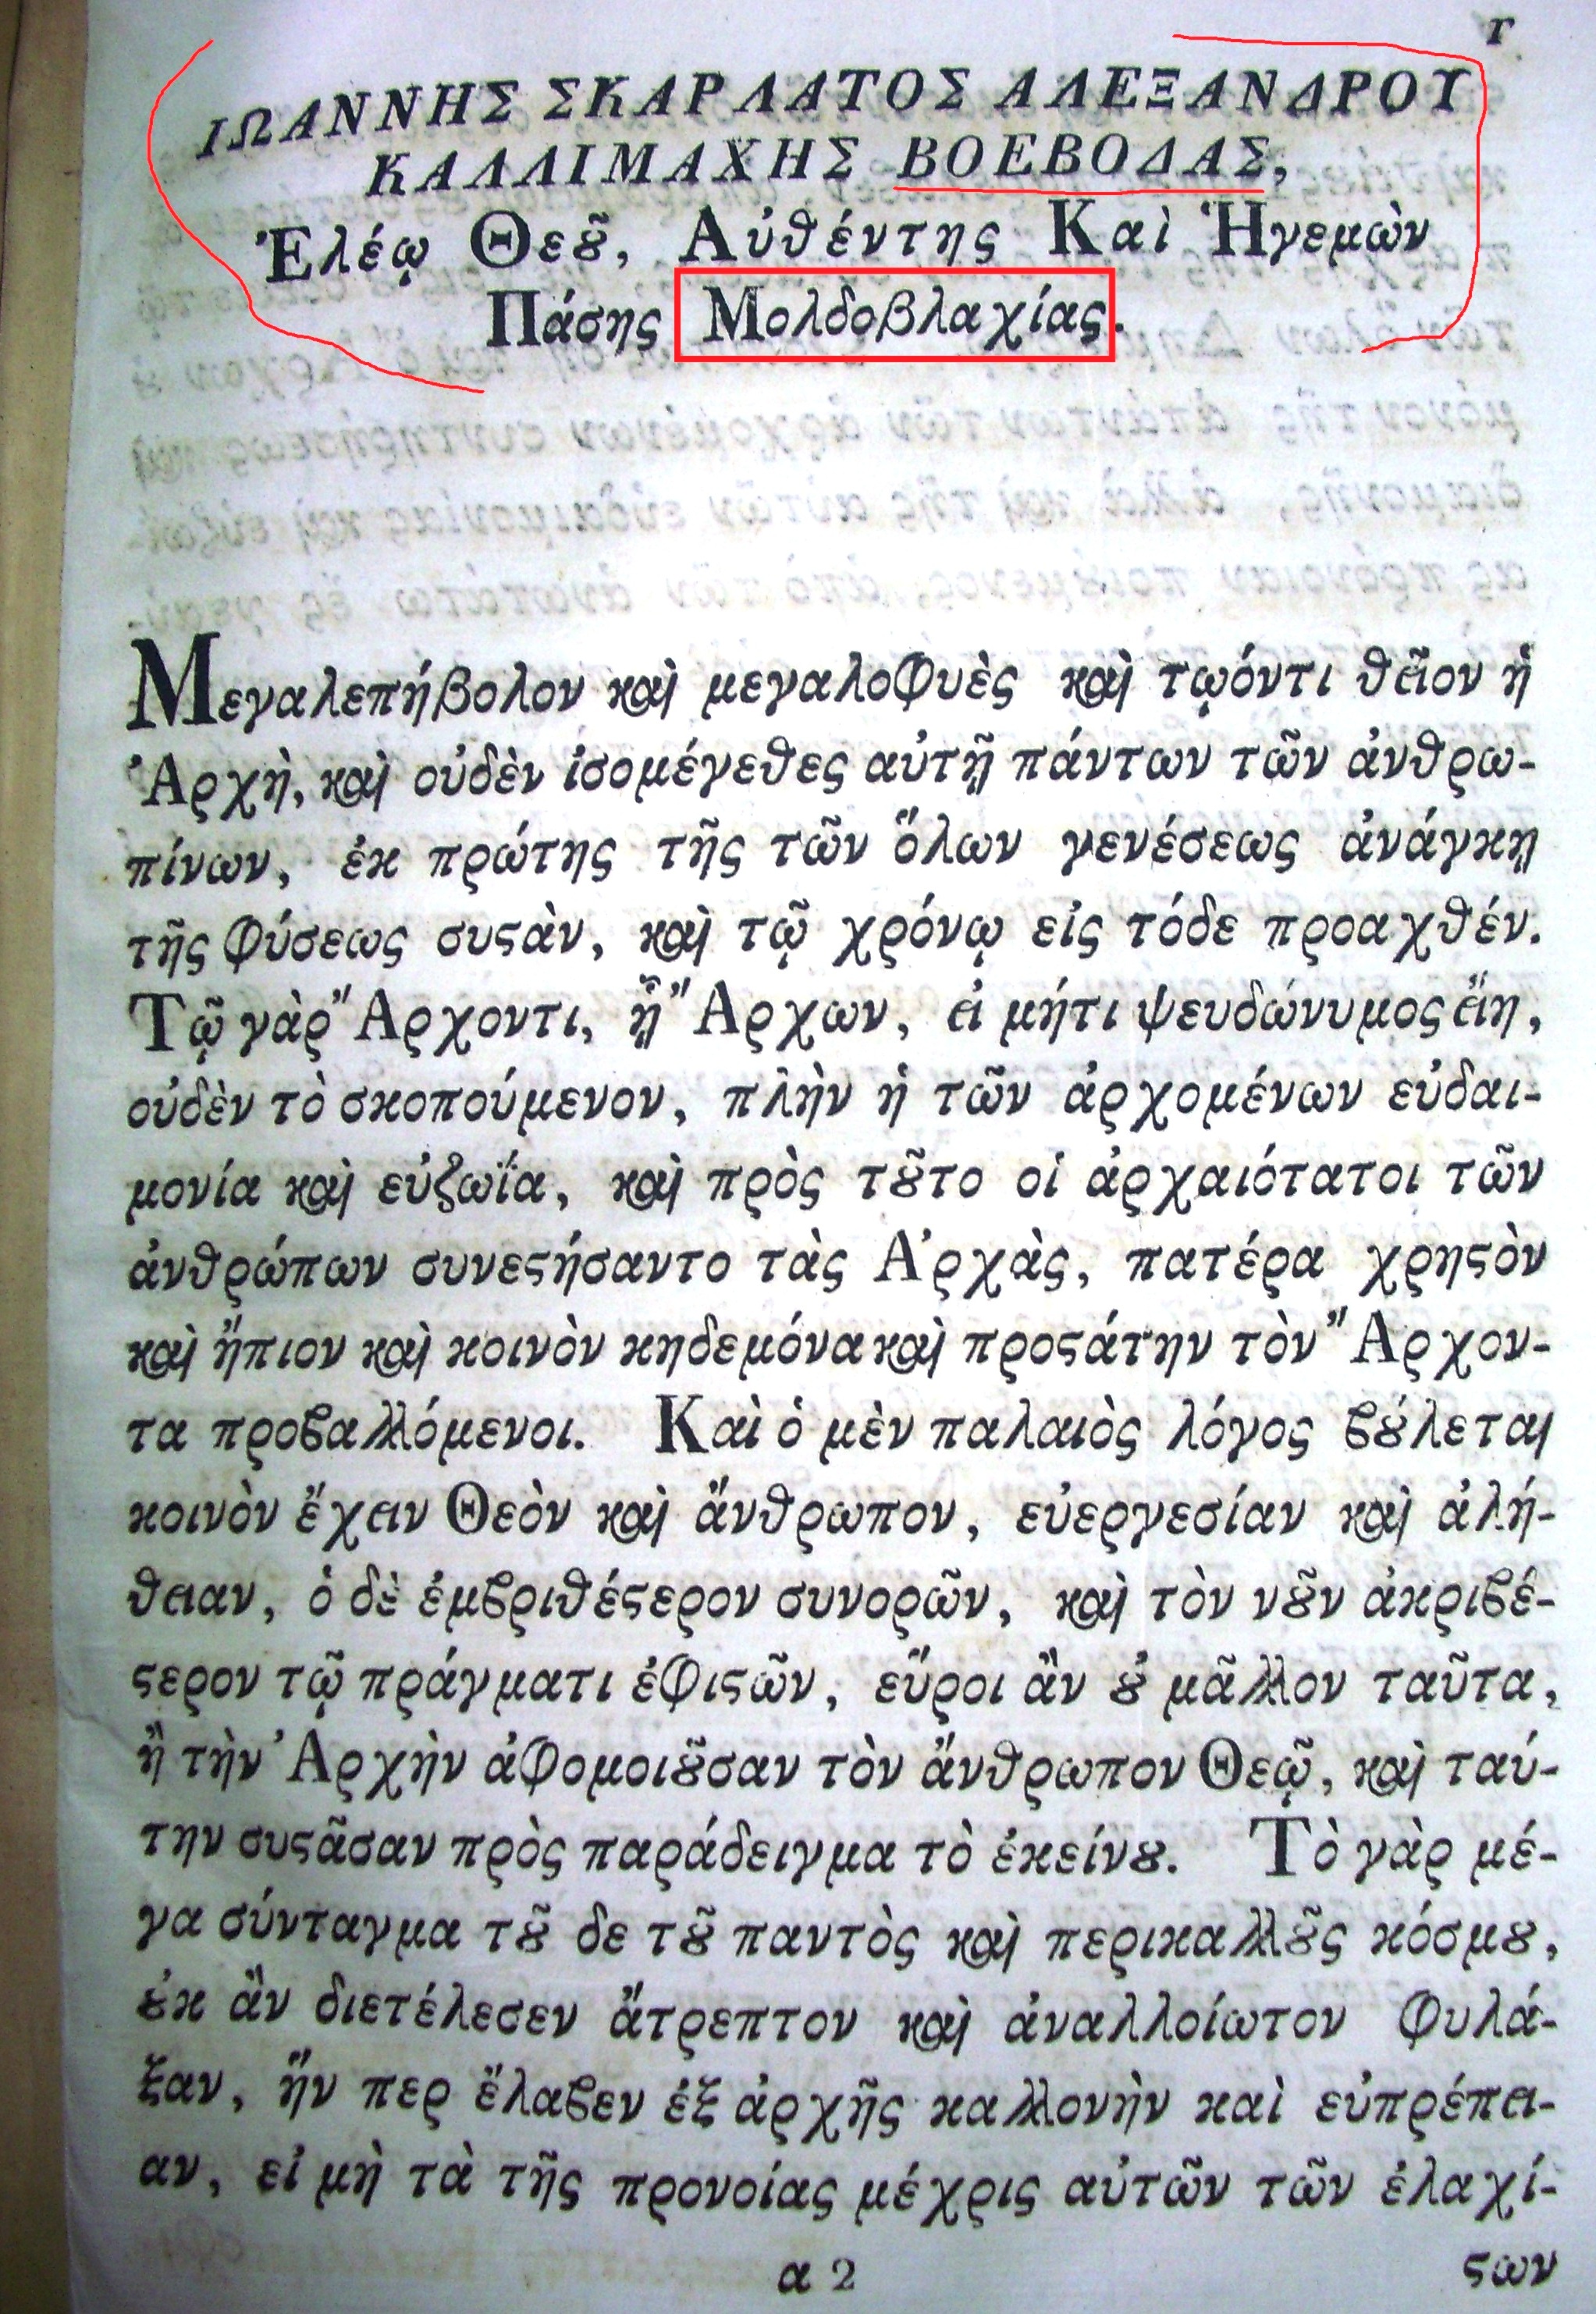 γ
ΙΩΑΝΝΗΣ ΣΚΑΡΛΑΤΟΣ ΑΛΕΞΑΝΔΡΟΥ
ΚΑΛΛΙΜΑΧΗΣ ΒΟΕΒΟΔΑΣ,
Ἐλέῳ Θεȣ͂, Αὐθέντης Καὶ Ἡγεμὼν
Πάσης Μολδοβλαχίας.
Μεγαλεπήβολον καὶ μεγαλοφυὲς καὶ τῳόντι θεῖον ἡ
Ἀρχὴ, καὶ οὐδὲν ἰσομέγεθες αὐτῇ πάντων τῶν ἀνθρω-
πίνων, ἐκ πρώτης τῆς τῶν ὅλων γενέσεως ἀνάγκῃ
τῆς φύσεως συϛὰν, καὶ τῷ χρόνῳ εἰς τόδε προαχθέν.
Τῷ γὰρ Ἄρχοντι, ᾗ Ἄρχων, εἰ μήτι ψευδώνυμος εἴη,
οὐδὲν τὸ σκοπούμενον, πλὴν ἡ τῶν ἀρχομένων εὐδαι-
μονία καὶ εὐζωΐα, καὶ πρὸς τȣ͂το οἱ ἀρχαιότατοι τῶν
ἀνθρώπων συνεϛήσαντο τὰς Ἀρχὰς, πατέρα χρηϛὸν
καὶ ἤπιον καὶ κοινὸν κηδεμόνα καὶ προϛάτην τὸν Ἄρχον-
τα προϐαλλόμενοι. Καὶ ὁ μὲν παλαιὸς λόγος ϐȣ́λεται
κοινὸν ἔχειν Θεὸν καὶ ἄνθρωπον, εὐεργεσίαν καὶ ἀλή-
θειαν, ὁ δὲ ἐμϐριθέϛερον συνορῶν, καὶ τὸν νȣ͂ν ἀκριϐέ-
ϛερον τῷ πράγματι ἐφιϛῶν, εὕροι ἂν ȣ̓ μᾶλλον ταῦτα,
ἢ τὴν Ἀρχὴν ἀφομοιȣ͂σαν τὸν ἄνθρωπον Θεῷ, καὶ ταύ-
την συϛᾶσαν πρὸς παράδειγμα τὸ ἐκείνȣ. Τὸ γὰρ μέ-
γα σύνταγμα τȣ͂ δε τȣ͂ παντὸς καὶ περικαλλȣ͂ς κόσμȣ,
ȣ̓κ ἂν διετέλεσεν ἄτρεπτον καὶ ἀναλλοίωτον φυλά-
ξαν, ἥν περ ἔλαϐεν ἐξ ἀρχῆς καλλονὴν καὶ εὐπρέπει-
αν, εἰ μὴ τὰ τῆς προνοίας μέχρις αὐτῶν τῶν ἐλαχί-
α 2
ϛων